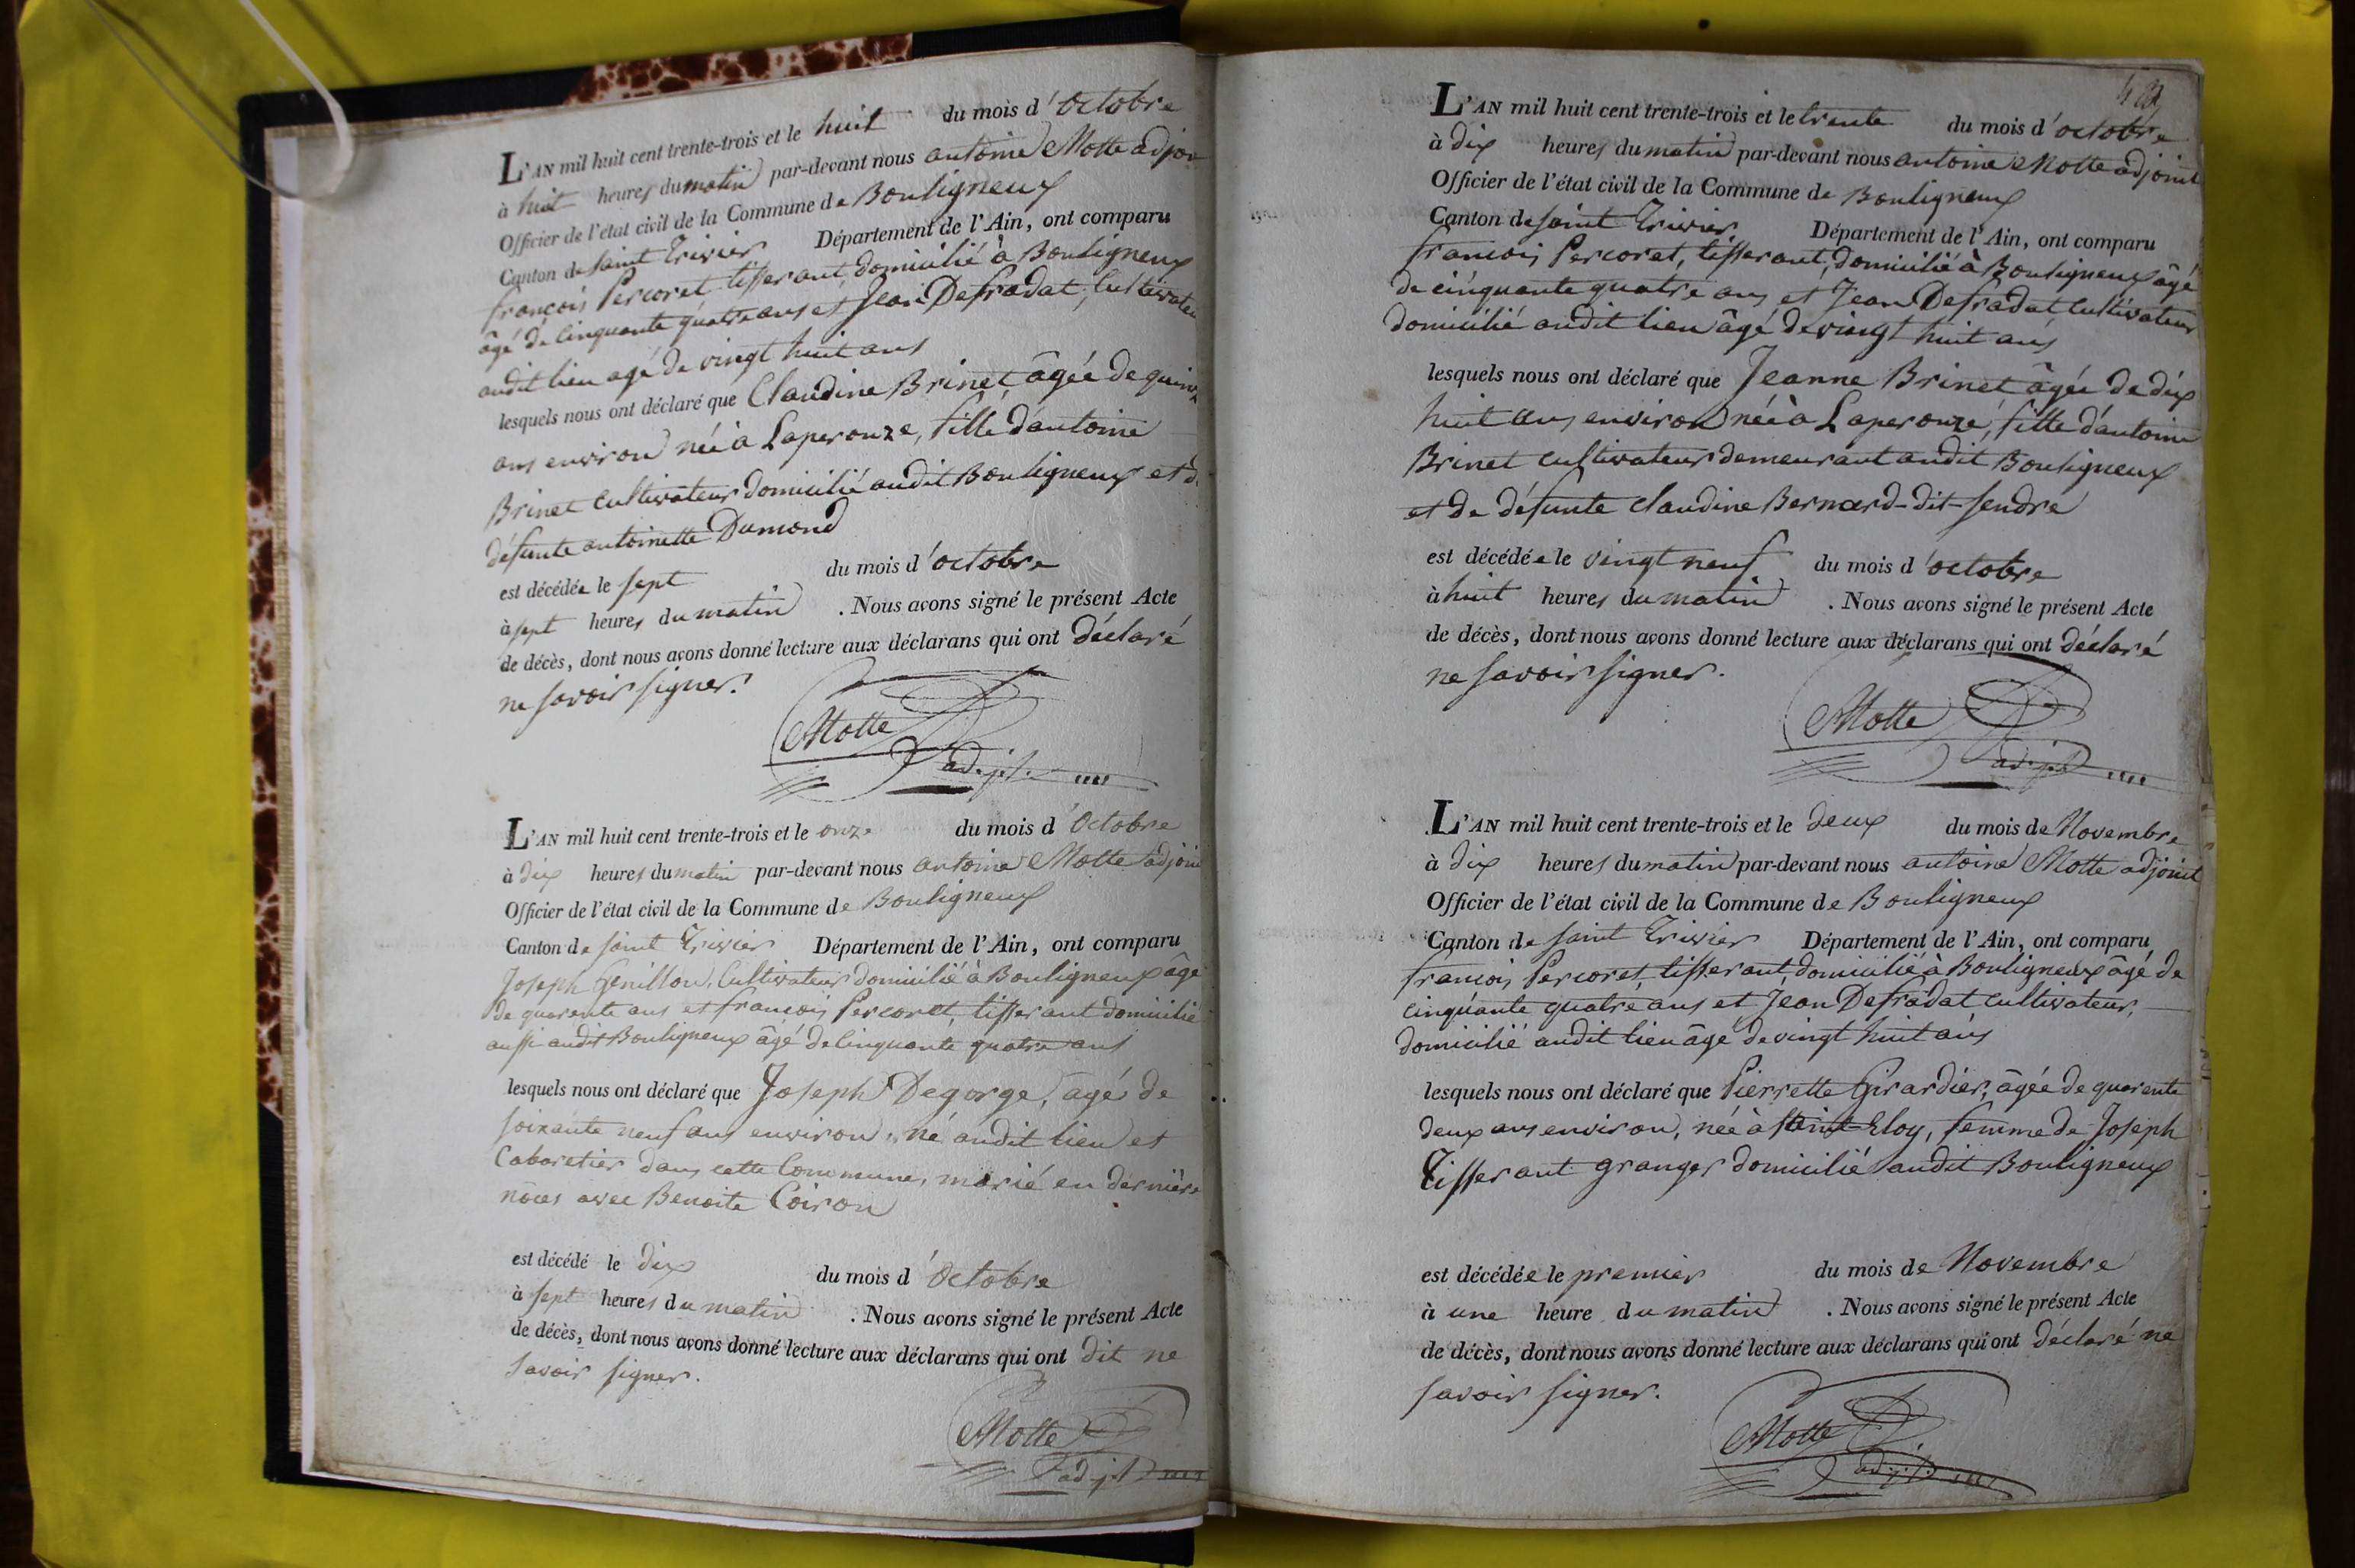 L'AN mil huit cent trente-trois et le huit du mois d'Octobre
à huit heures du matin par-devant nous antoine Motte adjoin
Officier de l'état civil de la Commune de Bouligneux
Canton de saint Trivier Département de l'Ain, ont comparu
françois Percoret tisserant, domicilié à Bouligneux
âgé de cinquante quatre ans et Jean Defradat, Cultivateu
audit lieu agé de vingt huit ans
lesquels nous ont déclaré que Claudine Brinet âgée de quinze
ans environ née à Laperouze, fille d'antoine
Brinet cultivateur domicilié audit Bouligneux et d
défunte antoinette Dumond
est décédée le sept du mois d'octobre
à sept heures du matin . Nous avons signé le présent Acte
de décès, dont nous avons donné lecture aux déclarans qui ont déclaré
ne savoir signer.
Motte
adjt
L'AN mil huit cent trente-trois et le onze du mois d'Octobre
à dix heures du matin par-devant nous antoine Motte adjoin
Officier de l'état civil de la Commune de Bouligneux
Canton de saint Trivier Département de l'Ain, ont comparu
Joseph Genillon, Cultivateur domicilié à Bouligneux âgé
de quarente ans et francois Percoret, tisserant domicilié
aussi audit Bouligneux âgé de Cinquante quatre ans
lesquels nous ont déclaré que Joseph Degorge, agé de
soixante neuf ans environ, né audit lieu et
Cabaretier dans cette Commune, marié en dernière
nôces avec Benoite Coiron
est décédé le dix du mois d'Octobre
à sept heures du matin . Nous avons signé le présent Acte
de décès, dont nous avons donné lecture aux déclarans qui ont dit ne
savoir signer.
Motte
adjt
L'AN mil huit cent trente-trois et le trente du mois d'octobre
à dix heures du matin par-devant nous antoine Motte adjoint
Officier de l'état civil de la Commune de Bouligneux
Canton de saint Trivier Département de l'Ain, ont comparu
francois Percoret, tisserant, domicilié à Bouligneux âgé
de cinquante quatre ans et Jean Defradat Cultivateur
domicilié audit lieu âgé de vingt huit ans
lesquels nous ont déclaré que Jeanne Brinet âgée de dix
huit ans environ née à Laperouze, fille d'antoine
Brinet cultivateur demeurant audit Bouligneux
et de défunte Claudine Bernard-dit-sendre
est décédée le vingt neuf du mois d'octobre
à huit heures du matin . Nous avons signé le présent Acte
de décès, dont nous avons donné lecture aux déclarans qui ont déclaré
ne savoir signer.
Motte
adjt
L'AN mil huit cent trente-trois et le deux du mois de Novembre
à dix heures du matin par-devant nous antoine Motte adjoint
Officier de l'état civil de la Commune de Bouligneux
Canton de saint Trivier Département de l'Ain, ont comparu
francois Percoret, tisserant, domicilié à Bouligneux âgé de
cinquante quatre ans et Jean Defradat cultivateur,
domicilié audit lieu âgé de vingt huit ans
lesquels nous ont déclaré que Pierrette Girardier, âgée de quarente
deux ans environ, née à saint Eloy, femme de Joseph
Tisserant granger domicilié audit Bouligneux
est décédée le premier du mois de Novembre
à une heure du matin . Nous avons signé le présent Acte
de décès, dont nous avons donné lecture aux déclarans qui ont déclaré ne
savoir signer.
Motte
adjt